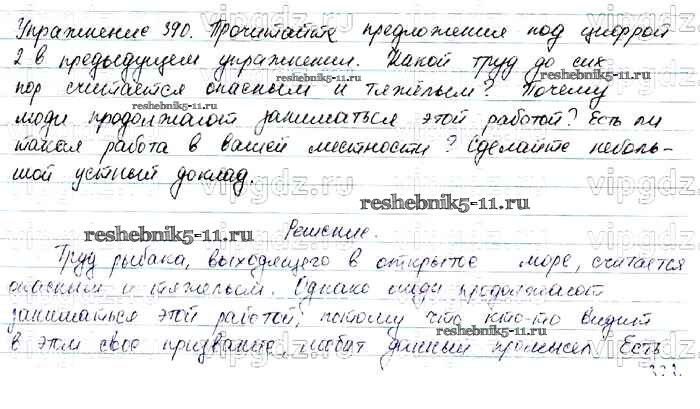 Упражнение 390. Прочитайте предложения под цифрой
2 в предыдущем упражнении. Какой труд до сих
пор считается опасным и тяжёлым? Почему
люди продолжают заниматься этой работой? Есть ли
такая работа в вашей местности? Сделайте неболь-
шой устный доклад.
Решение.
Труд рыбака, выходящего в открытое море, считается
опасным и тяжелым. Однако люди продолжают
заниматься этой работой, потому что кто-то видит
в этом свое призвание, любит данный промысел. Есть
vipgdz.com
reshebnik5-11.ru
reshebnik5-11.ru
reshebnik5-11.ru
reshebnik5-11.ru
reshebnik5-11.ru
reshebnik5-11.ru